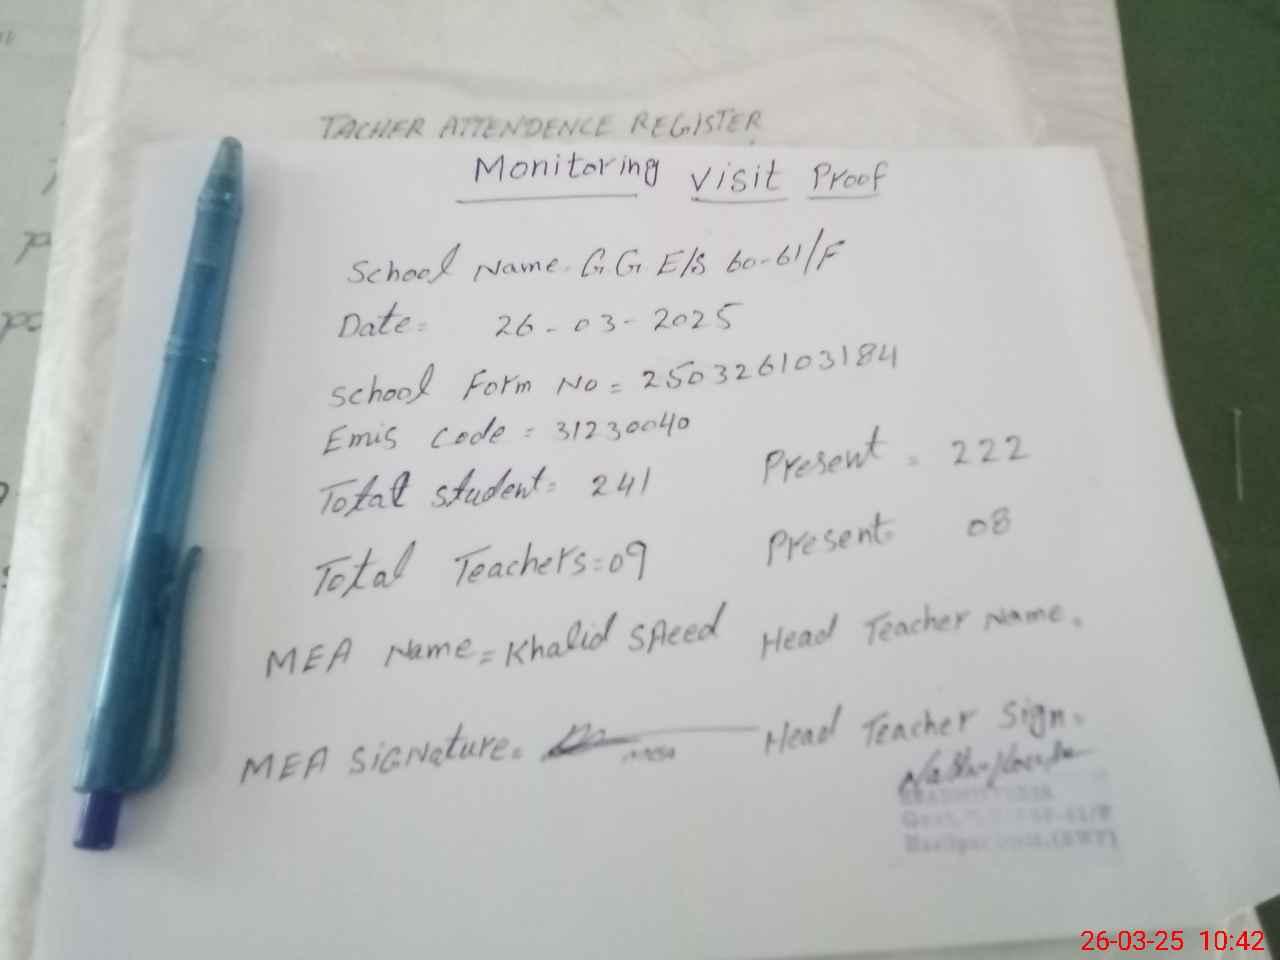 TACHER ATTENDENCE REGISTER
Monitoring visit Proof
School Name. G.G. E/S 60-61/F
Date= 26-03-2025
School Form No = 250326103184
Emis Code = 31230040
Total student= 241 Present = 222
Total Teachers=09 Present= 08
MEA Name = Khalid SAeed Head Teacher Name.
MEA SiGNature. Head Teacher Sign.
26-03-25 10:42